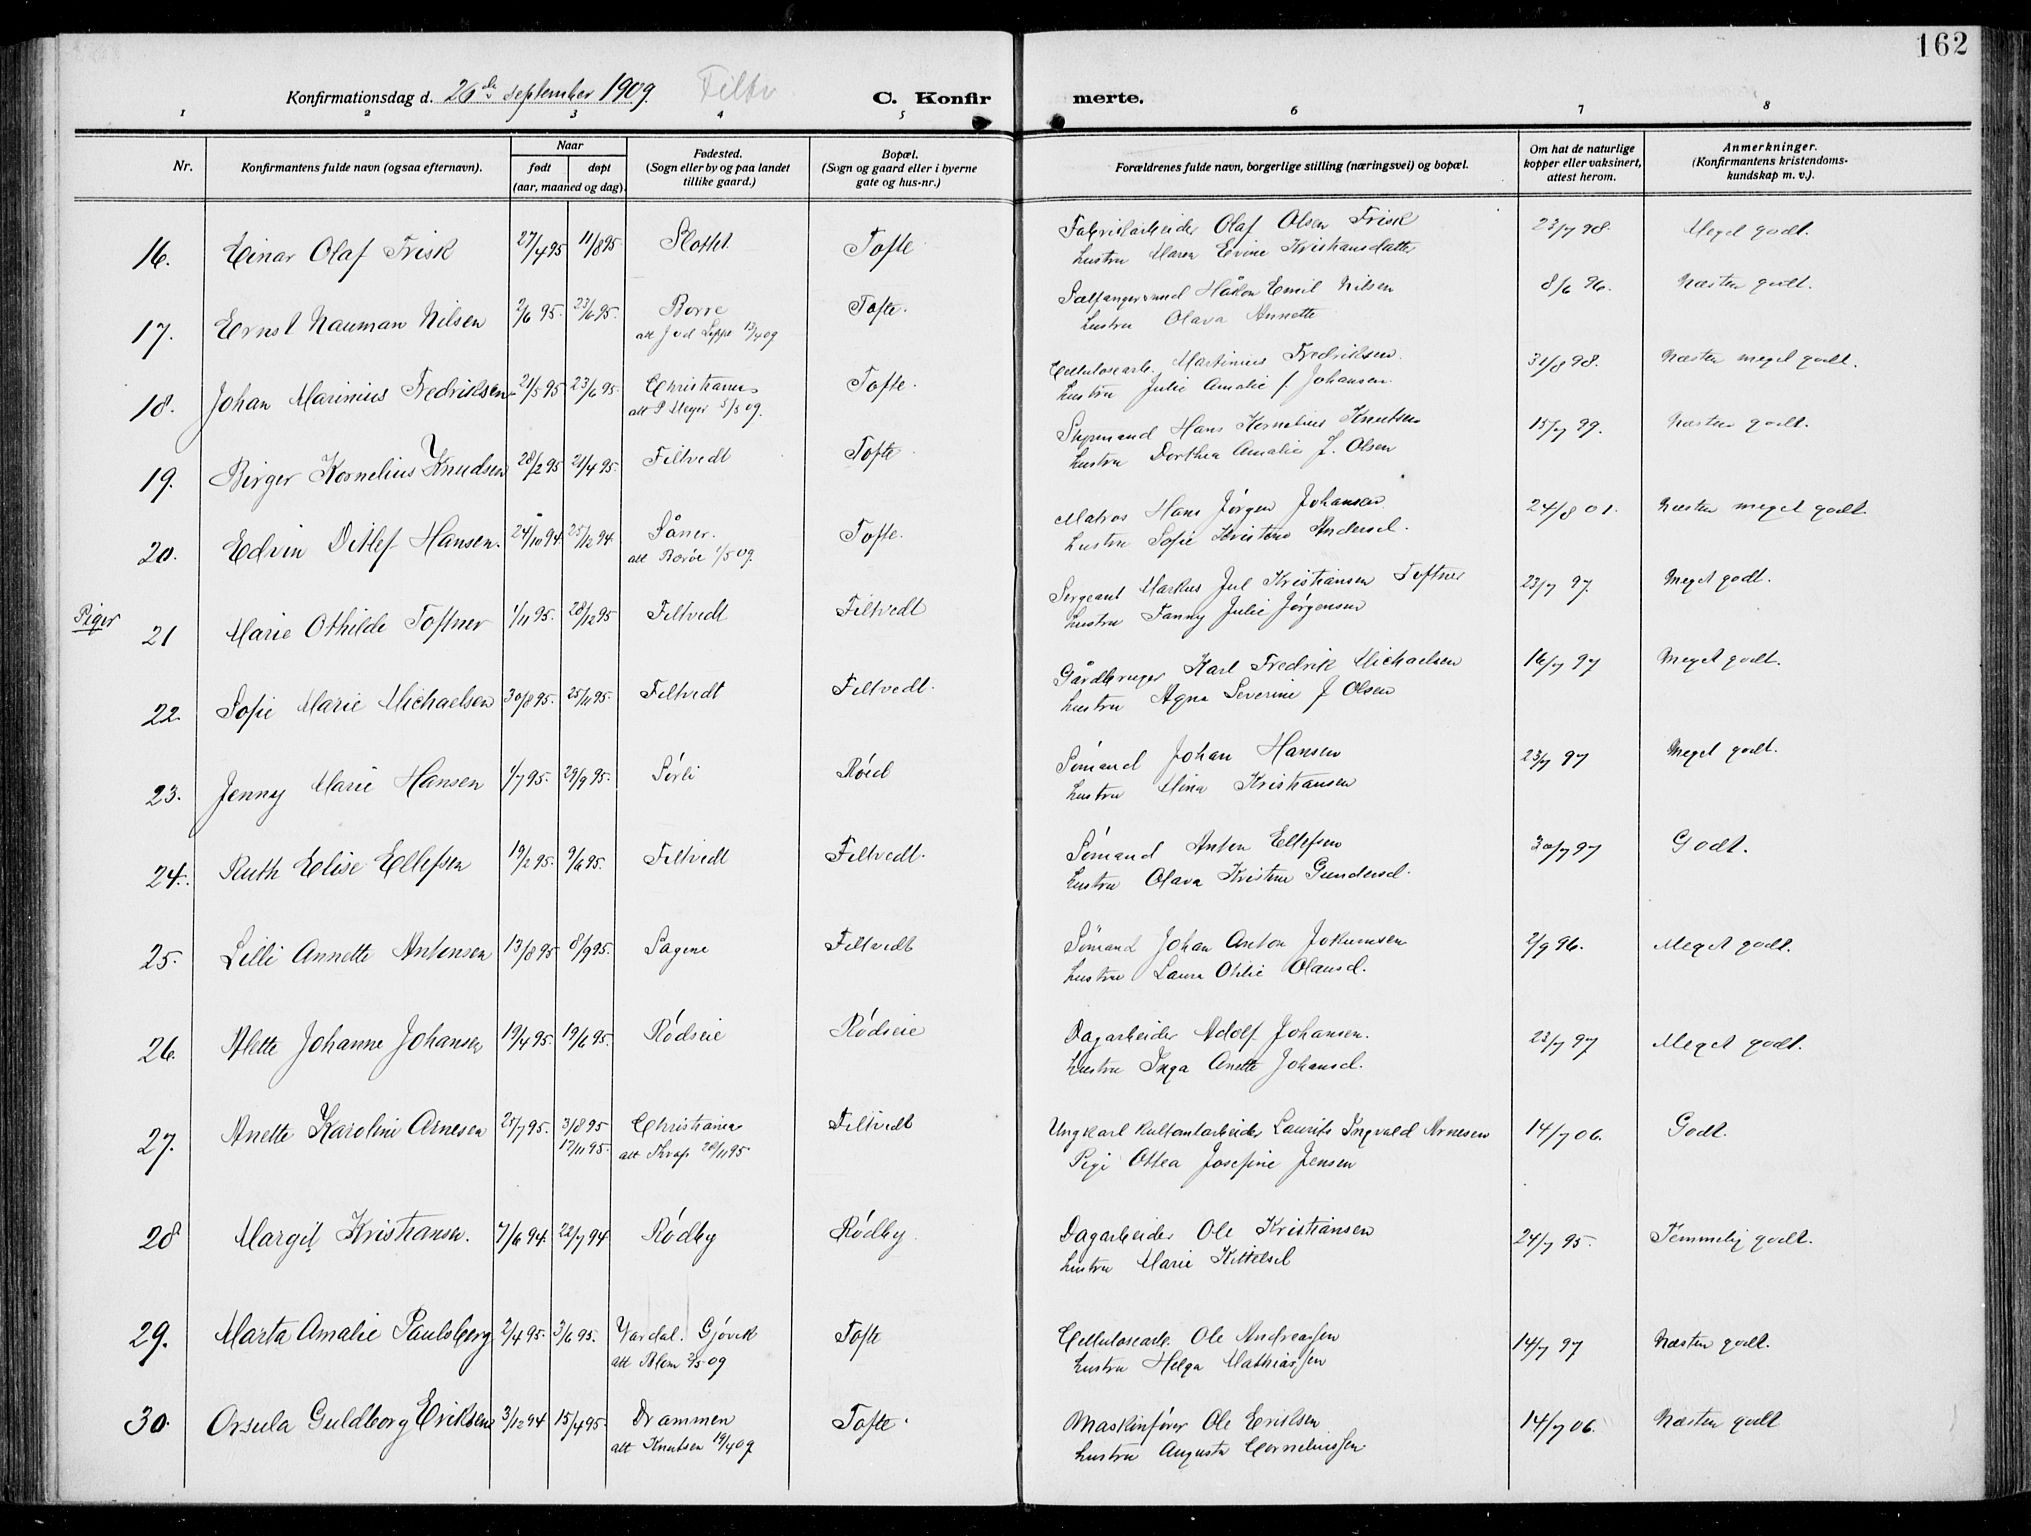 162
Konfirmationsdag d. 26de september 1909. Filtv
C. Konfirmerte.
1 2 3 4 5 6 7 8
Nr. Konfirmantens fulde navn (ogsaa efternavn). Naar født døpt (aar, maaned og dag). Fødested. (Sogn eller by og paa landet tillike gaard.) Bopæl. (Sogn og gaard eller i byerne gate og hus-nr.) Forældrenes fulde navn, borgerlige stilling (næringsvei) og bopæl. Om hat de naturlige kopper eller vaksinert, attest herom. Anmerkninger. (Konfirmantens kristendoms- kundskap m. v.).
16. Einar Olaf Frisk 27/4 95 11/8 95 Slottet Tofte Fabrikarbeider Olaf Olsen Frisk 23/7 98. Meget godt.
hustru Maren Evine Kristiansdatter
17. Ernst Nauman Nilsen 2/6 95. 23/6 95. Borre Tofte. Sælfangersmand Håkon Emil Nilsen 8/6 96. Næsten godt.
att J v d Lippe 13/4 09 hustru Olava Annette
18. Johan Marinius Fredriksen 21/5 95 23/6 95. Christiania Tofte. Cellulosearb. Martinius Fredriksen. 31/8 98. Næsten meget godt.
att P Meyer 5/5 09. hustru Julie Amalie f. Johansen.
19. Birger Kornelius Knudsen 28/2 95 21/4 95. Filtvedt Tofte. Styrmand Hans Kornelius Knutsen 15/7 99. Næsten godt.
hustru Dorthea Amalie f. Olsen
20. Edvin Ditlef Hansen. 24/10 94. 25/12 94. Såner. Tofte. Matros Hans Jørgen Johansen 24/8 01. Næsten meget godt.
att Borøe 1/5 09. hustru Sofie Kristine Andersd.
Piger
21 Marie Othilde Toftner 1/11 95. 28/12 95 Filtvedt Filtvedt Sergeant Markus Jul Kristiansen Toftner 23/7 97. Meget godt.
hustru Fanny Julie Jørgensen
22. Sofie Marie Michaelsen 30/8 95. 25/11 95. Filtvedt Filtvedt. Gårdbruger Karl Fredrik Michaelsen 16/7 97 Meget godt.
hustru Agna Severine f Olsen
23. Jenny Marie Hansen 1/7 95. 29/9 95. Sørli Røid Sømand Johan Hansen 23/7 97 Meget godt.
hustru Mina Kristiansen
24. Ruth Elise Ellefsen 19/2 95. 9/6 95. Filtvedt Filtvedt. Sømand Anton Ellefsen 30/7 97 Godt.
hustru Olava Kristine Gundersd.
25. Lilli Annette Antonsen 13/8 95 8/9 95. Sagene Filtvedt Sømand Johan Anton Jokumsen 2/9 96. Meget godt.
hustru Laura Otilie Olausd.
26. Alette Johanne Johansen 19/4 95. 19/6 95. Rødseie Rødseie Dagarbeider Adolf Johansen. 23/7 97. Meget godt.
hustru Inga Anette Johansd.
27. Anette Karoline Arnesen 25/7 95. 3/8 95 Christiania Filtvedt Ungkarl Kultantarbeider Laurits Ingvald Arnesen 14/7 06. Godt.
17/11 95. att Thrap 20/11 95 Pige Ottea Josefine Jensen
28 Margit Kristiansen. 7/6 94. 22/7 94 Rødby Rødby. Dagarbeider Ole Kristiansen 24/7 95. Temmelig godt.
hustru Marie Kittelsd
29. Marta Amalie Paulsberg 2/4 95. 3/6 95. Vardal. Gjøvik Tofte Cellulosearb. Ole Andreassen 14/7 97 Næsten godt.
att Blom 2/5 09 hustru Helga Mathiassen
30. Orsula Guldborg Eriksen 3/12 94 15/4 95. Drammen Tofte. Maskinfører Ole Eriksen 14/7 06. Næsten godt
att Knutsen 19/4 09 hustru Augusta Corneliussen